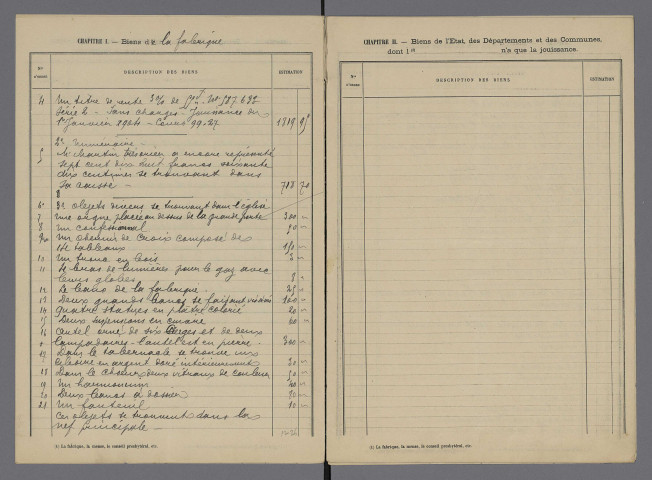 CHAPITRE I. — Biens de la fabrique
Nos d'ordre DESCRIPTION DES BIENS ESTIMATION
4 Un titre de rente 3% de No 587.692
Série — Sans charges — Jouissance du
1er Janvier — Cours 99.27 1819 95
2° Numéraire —
5 Mr Martin Trésorier a encore représenté
Sept cent dix huit francs soixante
dix centimes se trouvant dans
la caisse — 718 70
6° objets divers se trouvant dans l'église
7 un orgue placé au dessus de la grande porte 300
8 Un confessionnal 50
9 Un chemin de croix composé de
14 tableaux 150
10 Un tronc en bois 2
11 bras de lumières pour le gaz avec
leurs globes 8
12 Le banc de la fabrique 25
13 Deux grands bancs se faisant vis à vis 100
14 Quatre statues en plâtre colorié 20
15 Deux suspensions en cuivre 60
16 Autel orné de six cierges et de deux
lampadaires — l'autel est en pierre 300
17 Dans le tabernacle se trouve un
ciboire en argent doré intérieurement 20
18 Dans le chœur deux vitraux de couleur 50
19 Un harmonium 40
20 Deux bancs à dossier 10
21 Un fauteuil 10
Ces objets se trouvent dans la
nef principale —
(1) La fabrique, la mense, le conseil presbytéral, etc.
CHAPITRE II. — Biens de l'Etat, des Départements et des Communes,
dont l (1) n'a que la jouissance.
Nos d'ordre DESCRIPTION DES BIENS ESTIMATION
(1) La fabrique, la mense, le conseil presbytéral, etc.